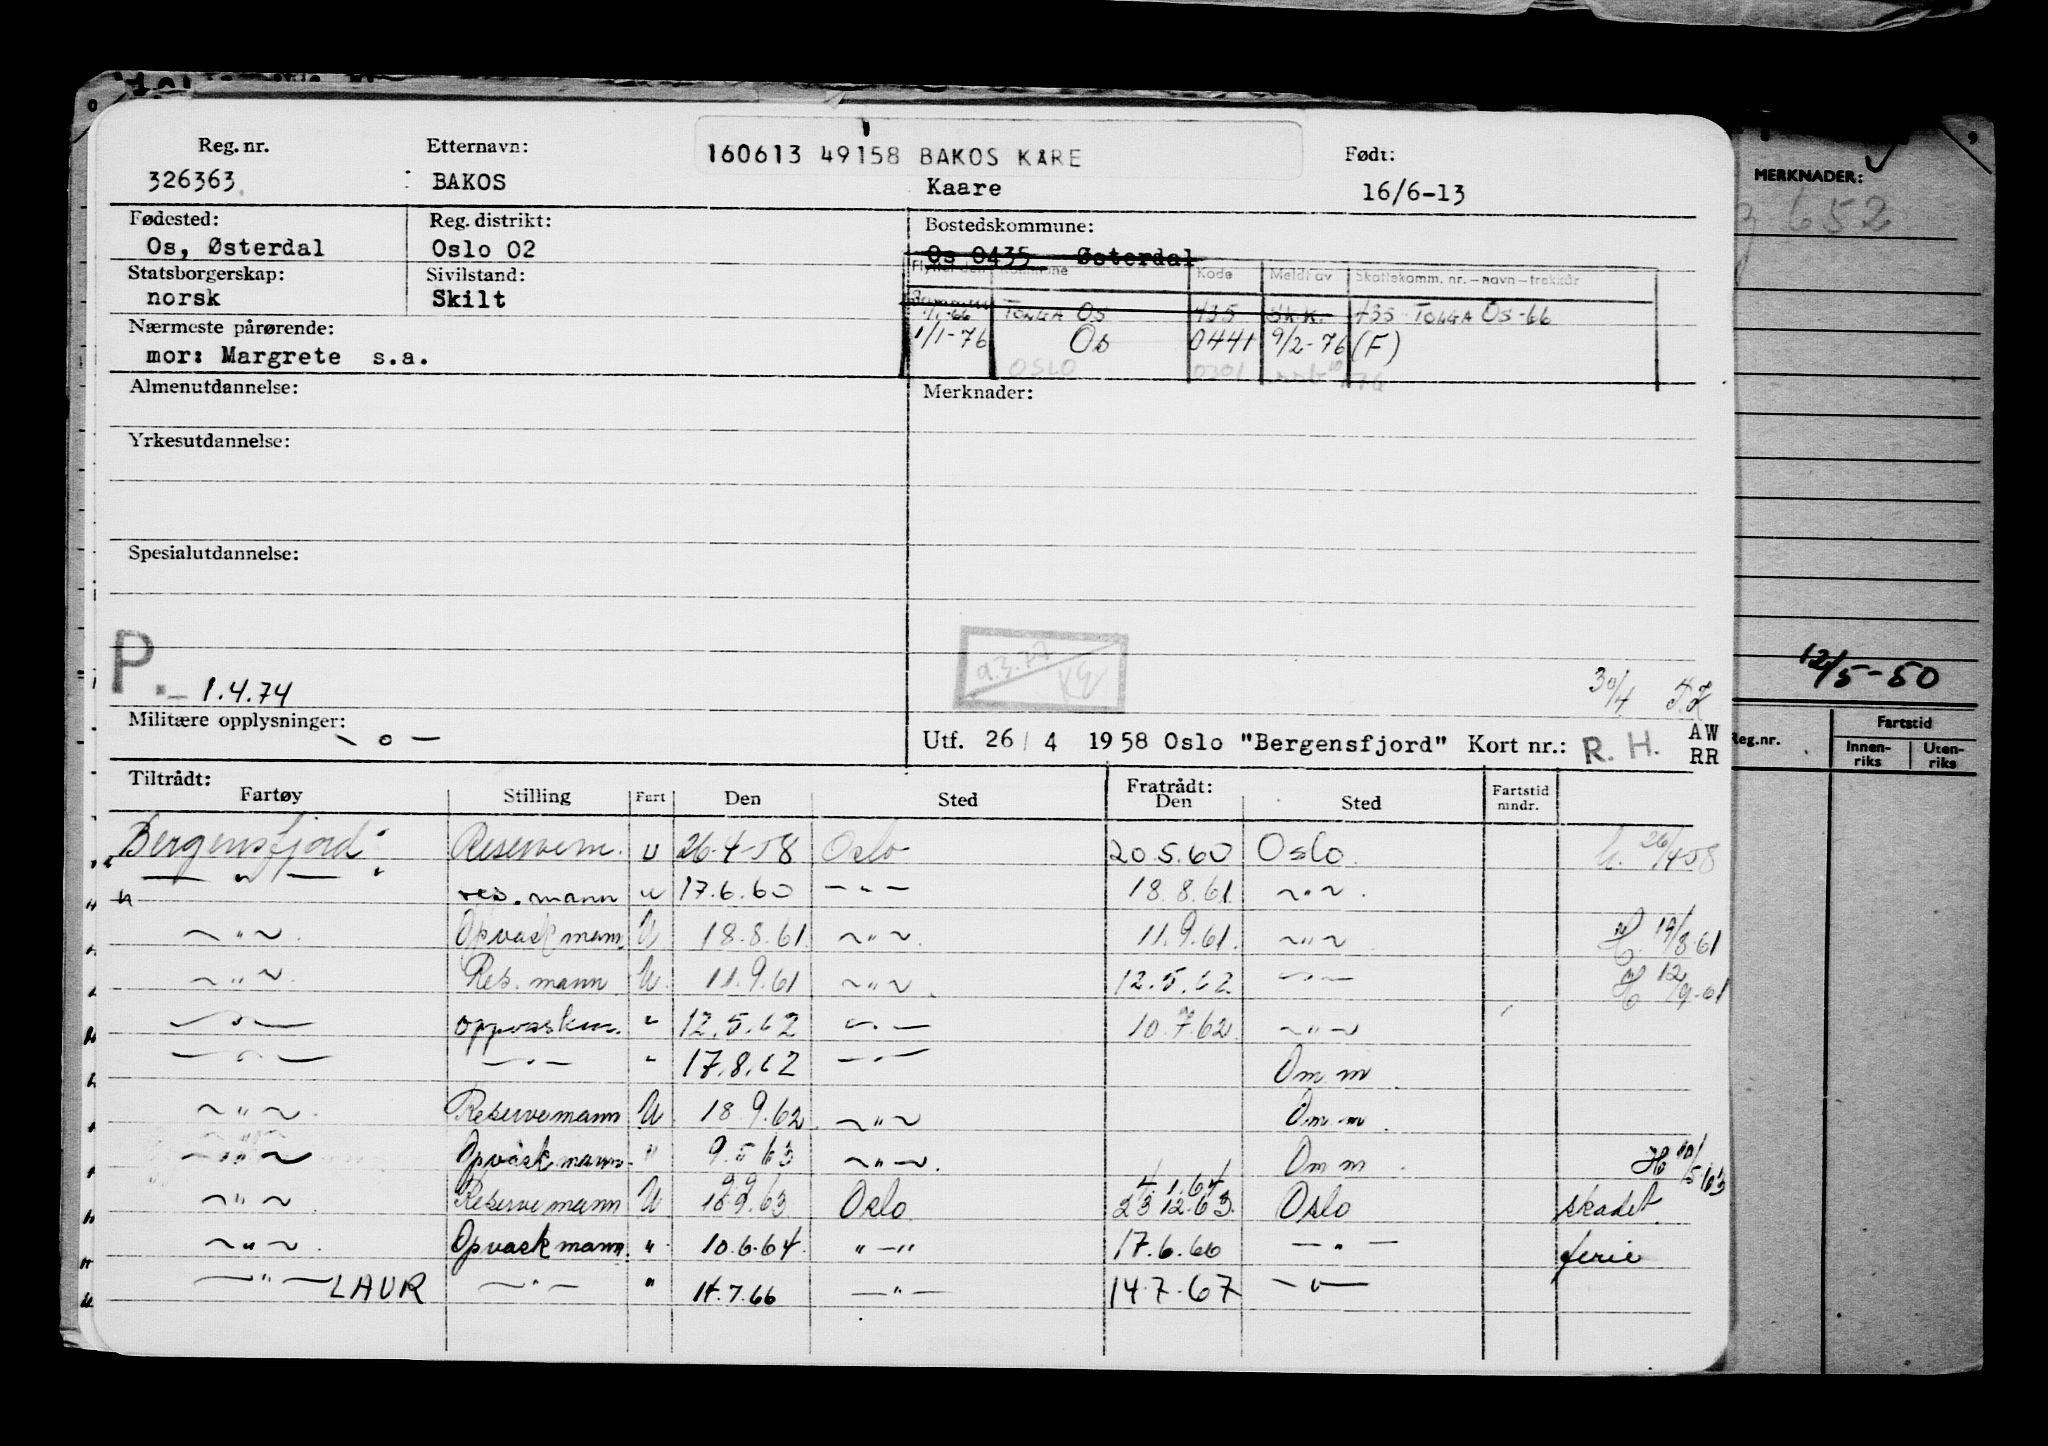 Reg. nr. Etternavn: 160613 49158 BAKOS KÅRE Født:
326363 BAKOS Kaare 16/6-13
Fødested: Reg. distrikt: Bostedskommune:
Os, Østerdal Oslo 02 Os 0435 Østerdal
Statsborgerskap: Sivilstand: Kommune Kode Meldt av Skattekomm. nr. – navn – trekkår
norsk Skilt 1/1-66 TOLGA OS 435 SKK. 435 TOLGA OS-66
Nærmeste pårørende: 1/1-76 Os 0441 9/2-76 (F)
mor: Margrete s.a. OSLO 0301
Almenutdannelse: Merknader:
Yrkesutdannelse:
Spesialutdannelse:
P. – 1.4.74 30/4
Militære opplysninger: - o -
Utf. 26/4 1958 Oslo "Bergensfjord" Kort nr.: R. H. AW
RR
Tiltrådt: Fratrådt:
Fartøy Stilling Fart Den Sted Den Sted Fartstid mndr.
Bergensfjord Reservem. u 26-4-58 Oslo 20.5.60 Oslo 26/4-58
— " — res. mann u 17.6.60 — " — 18.8.61 ~ " ~
~ " ~ Opvaskmann U 18.8.61 ~ " ~ 11.9.61. ~ " ~ H. 19/8-61
~ " ~ Res. mann U 11.9.61 ~ " ~ 12.5.62 — " — H 12/9-61
— " — oppvaskm. " 12.5.62 — " — 10.7.62 ~ " ~
— " — — " — " 17.8.62 — " — Om m
~ " ~ Reservemann U 18 9.62 ~ " ~ Om m
~ " ~ Opvaskmann " 9.5 63 ~ " ~ Om m H 10/5 63
~ " ~ Reservemann U 9.9 18 9.63 Oslo 4.1.64 23 12.63 Oslo skadet
~ " ~ Opvaskmann " 10.6.64 " — " 17.6.66 — " — ferie
— " — LAUR — " — " 11.7.66 — " — 14.7.67 — " —
MERKNADER:
652
12/5-50
Reg.nr. Fartstid
Innen-riks Uten-riks